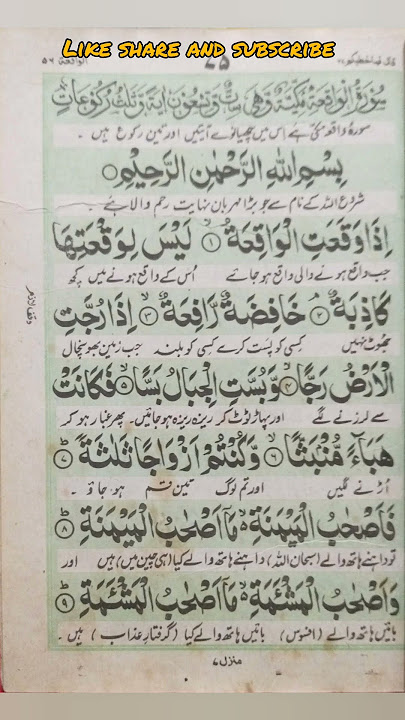 LIKE SHARE AND SUBSCRIBE
الواقعة ٥٦
سُوْرَةُ الْوَاقِعَةِ مَكِّيَّةٌ وَّهِيَ سِتٌّ وَّتِسْعُوْنَ اٰيَةً وَّثَلٰثُ رُكُوْعَاتٍ
سورۂ واقعہ مکی ہے اس میں چھیانوے آیتیں اور تین رکوع ہیں ۔
بِسْمِ اللهِ الرَّحْمٰنِ الرَّحِيْمِ
شروع اللہ کے نام سے جو بڑا مہربان نہایت رحم والا ہے ۔
اِذَا وَقَعَتِ الْوَاقِعَةُ ۙ﴿۱﴾ لَيْسَ لِوَقْعَتِهَا
جب واقع ہونے والی واقع ہو جائے اُس کے واقع ہونے میں کچھ
كَاذِبَةٌ ۘ﴿۲﴾ خَافِضَةٌ رَّافِعَةٌ ۙ﴿۳﴾ اِذَا رُجَّتِ
جھوٹ نہیں کسی کو پست کرے کسی کو بلند جب زمین بھونچال
وقف لازم
الْاَرْضُ رَجًّا ۙ﴿۴﴾ وَّبُسَّتِ الْجِبَالُ بَسًّا ۙ﴿۵﴾ فَكَانَتْ
سے لرزنے لگے اور پہاڑ ٹوٹ کر ریزہ ریزہ ہو جائیں۔ پھر غبار ہو کر
هَبَآءً مُّنْۢبَثًّا ۙ﴿۶﴾ وَّكُنْتُمْ اَزْوَاجًا ثَلٰثَةً ؕ﴿۷﴾
اُڑنے لگیں اور تم لوگ تین قسم ہو جاؤ ۔
فَاَصْحٰبُ الْمَيْمَنَةِ ۙ مَاۤ اَصْحٰبُ الْمَيْمَنَةِ ؕ﴿۸﴾
تو داہنے ہاتھ والے (سبحان اللہ) داہنے ہاتھ والے کیا (ہی چین میں) ہیں اور
وَاَصْحٰبُ الْمَشْئَمَةِ ۙ مَاۤ اَصْحٰبُ الْمَشْئَمَةِ ؕ﴿۹﴾
بائیں ہاتھ والے (افسوس) بائیں ہاتھ والے کیا (گرفتار عذاب) ہیں ۔
منزل ۷